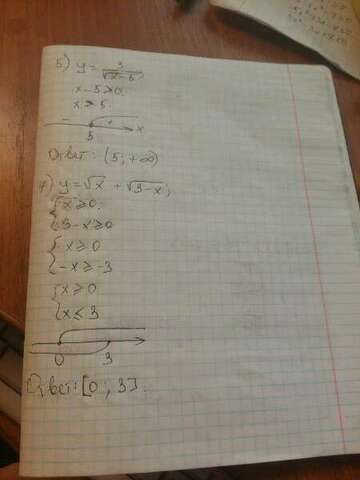 5) y = 3/√(x-5)
x-5>0
x>5
- +
5 x
Ответ: (5; +∞)
y=√x + √(3-x);
{x≥0;
{3-x≥0
{x≥0
{-x≥-3
{x≥0
{x≤3
0 3
Ответ: [0; 3].